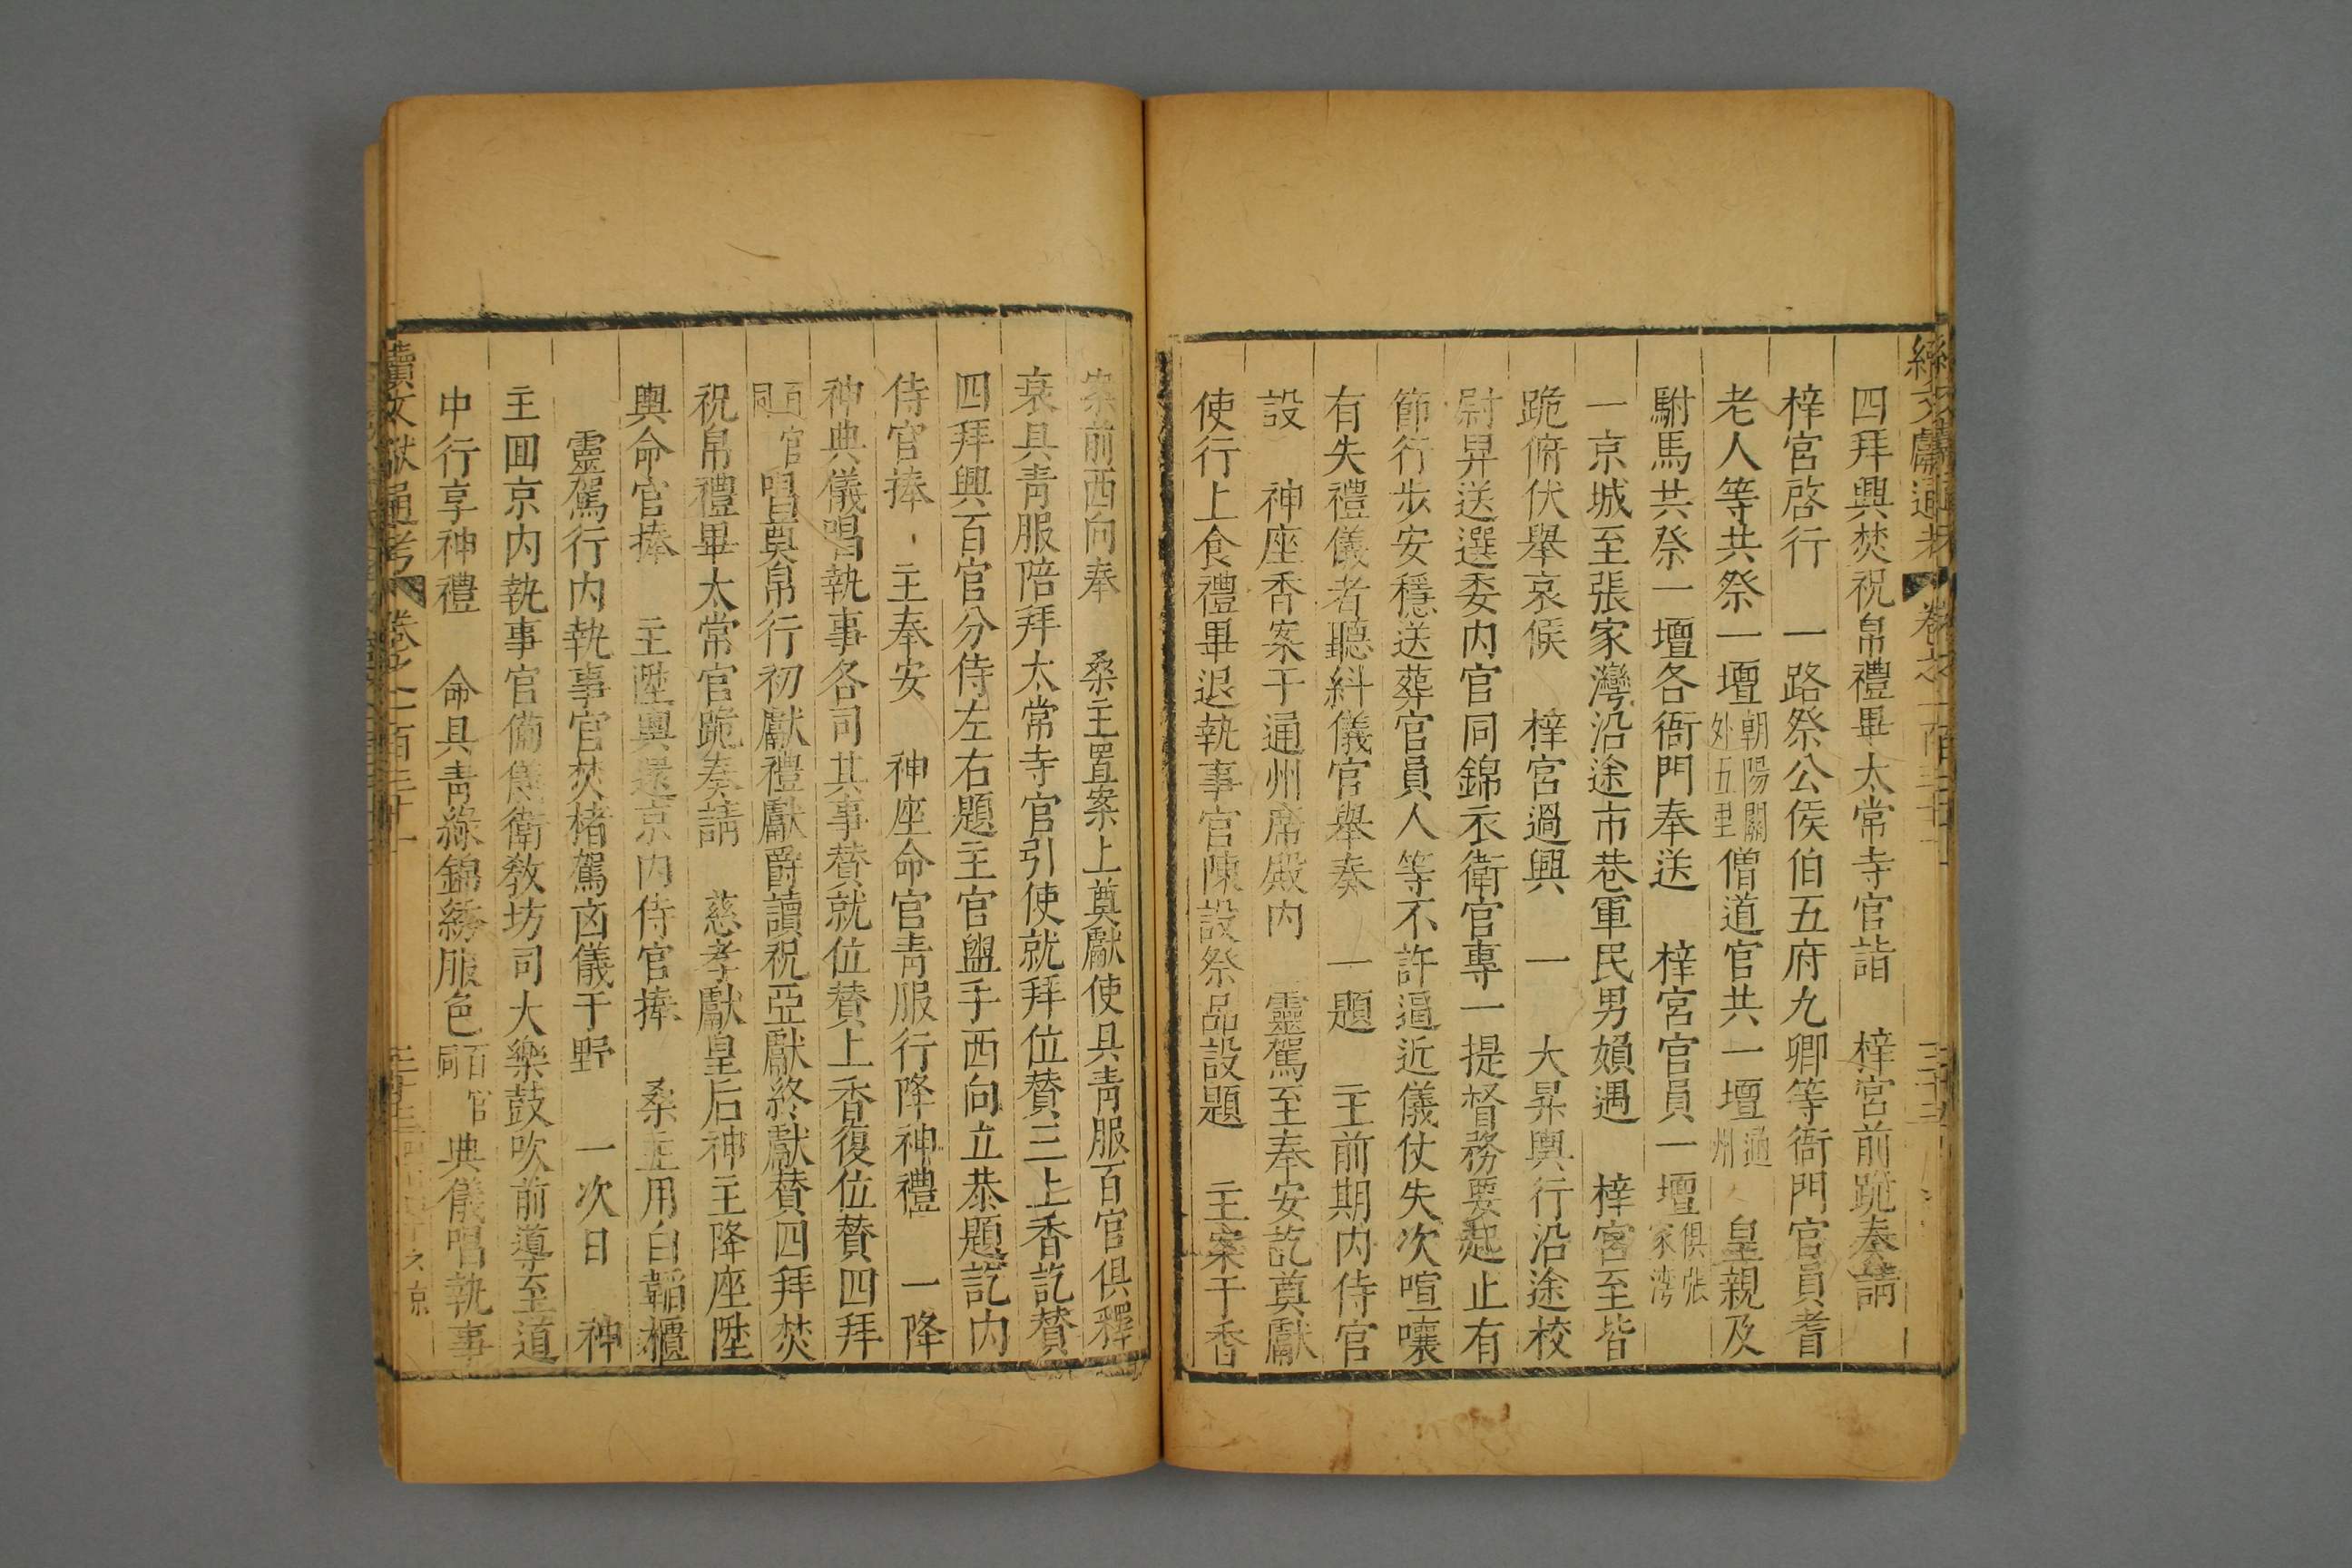 四拜興焚祝帛禮畢太常寺官詣　梓宮前跪奏請
梓宮啓行　一路祭公侯伯五府九卿等衙門官員耆
老人等共祭一壇朝陽關外五里僧道官共一壇通州　皇親及
駙馬共祭一壇各衙門奉送　梓宮官員一壇俱張家灣
一京城至張家灣沿途市巷軍民男婦遇　梓宮至皆
跪俯伏舉哀候　梓宮過興　一　大舁輿行沿途校
尉舁送選委内官同錦衣衛官專一提督務要起止有
節行步安穩送葬官員人等不許逼近儀仗失次喧嚷
有失禮儀者聽糾儀官舉奏　一題　主前期内侍官
設　神座香案于通州席殿内　靈駕至奉安訖奠獻
使行上食禮畢退執事官陳設祭品設題　主案于香
案前西向奉　桑主置案上奠獻使具青服百官俱釋
衰具青服陪拜太常寺官引使就拜位贊三上香訖贊
四拜興百官分侍左右題主官盥手西向立恭題訖内
侍官捧　主奉安　神座命官青服行降神禮　一降
神典儀唱執事各司其事贊就位贊上香復位贊四拜
百官同唱奠帛行初獻禮獻爵讀祝亞獻終獻贊四拜焚
祝帛禮畢太常官跪奏請　慈孝獻皇后神主降座陞
輿命官捧　主陞輿還京内侍官捧　桑主用白韜櫃
靈駕行内執事官焚楮駕凶儀于野　一次日　神
主回京内執事官備儀衛教坊司大樂鼓吹前導至道
中行享神禮　命具青綠錦綉服色百官同典儀唱執事
續文獻通考　卷之一百三十一